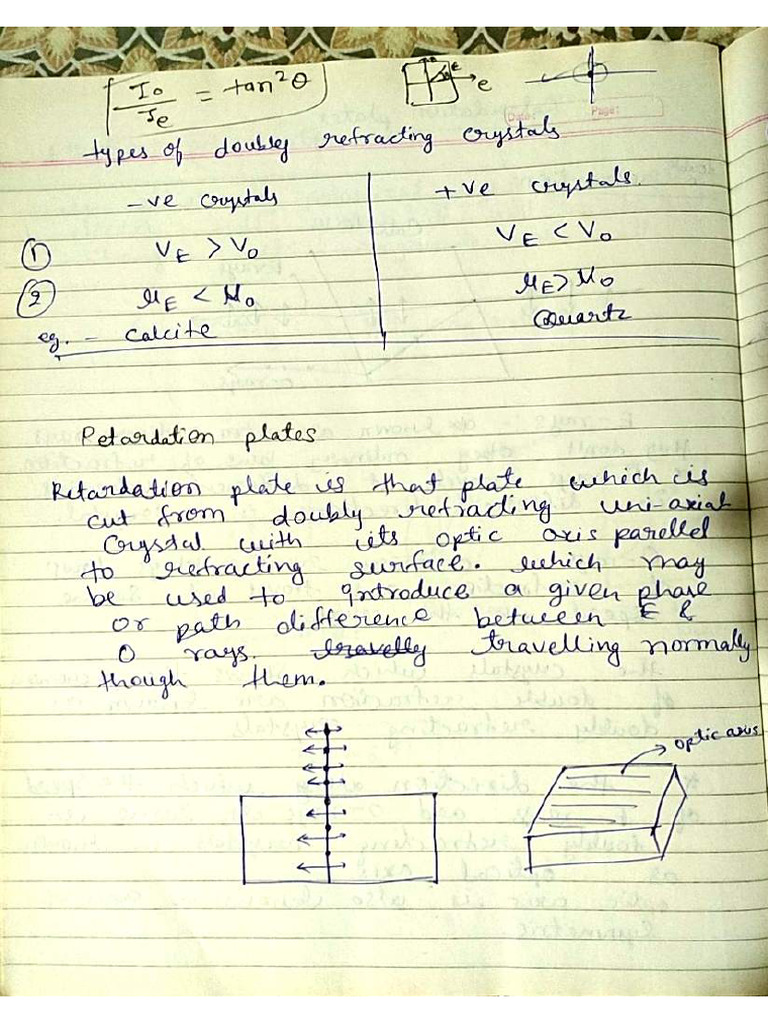 I₀/Iₑ = tan²θ
e → e
Date: Page:
types of doubly refracting crystals
-ve crystals +ve crystals.
① V_E > V_O V_E < V_O
② μ_E < μ_O μ_E > μ_O
eg. - Calcite Quartz
Retardation plates
Retardation plate is that plate which is
cut from doubly refracting uni-axial
Crystal with its optic axis parellel
to refracting surface. which may
be used to introduce a given phase
or path difference between E &
O rays. travelly travelling normally
though them.
optic axis